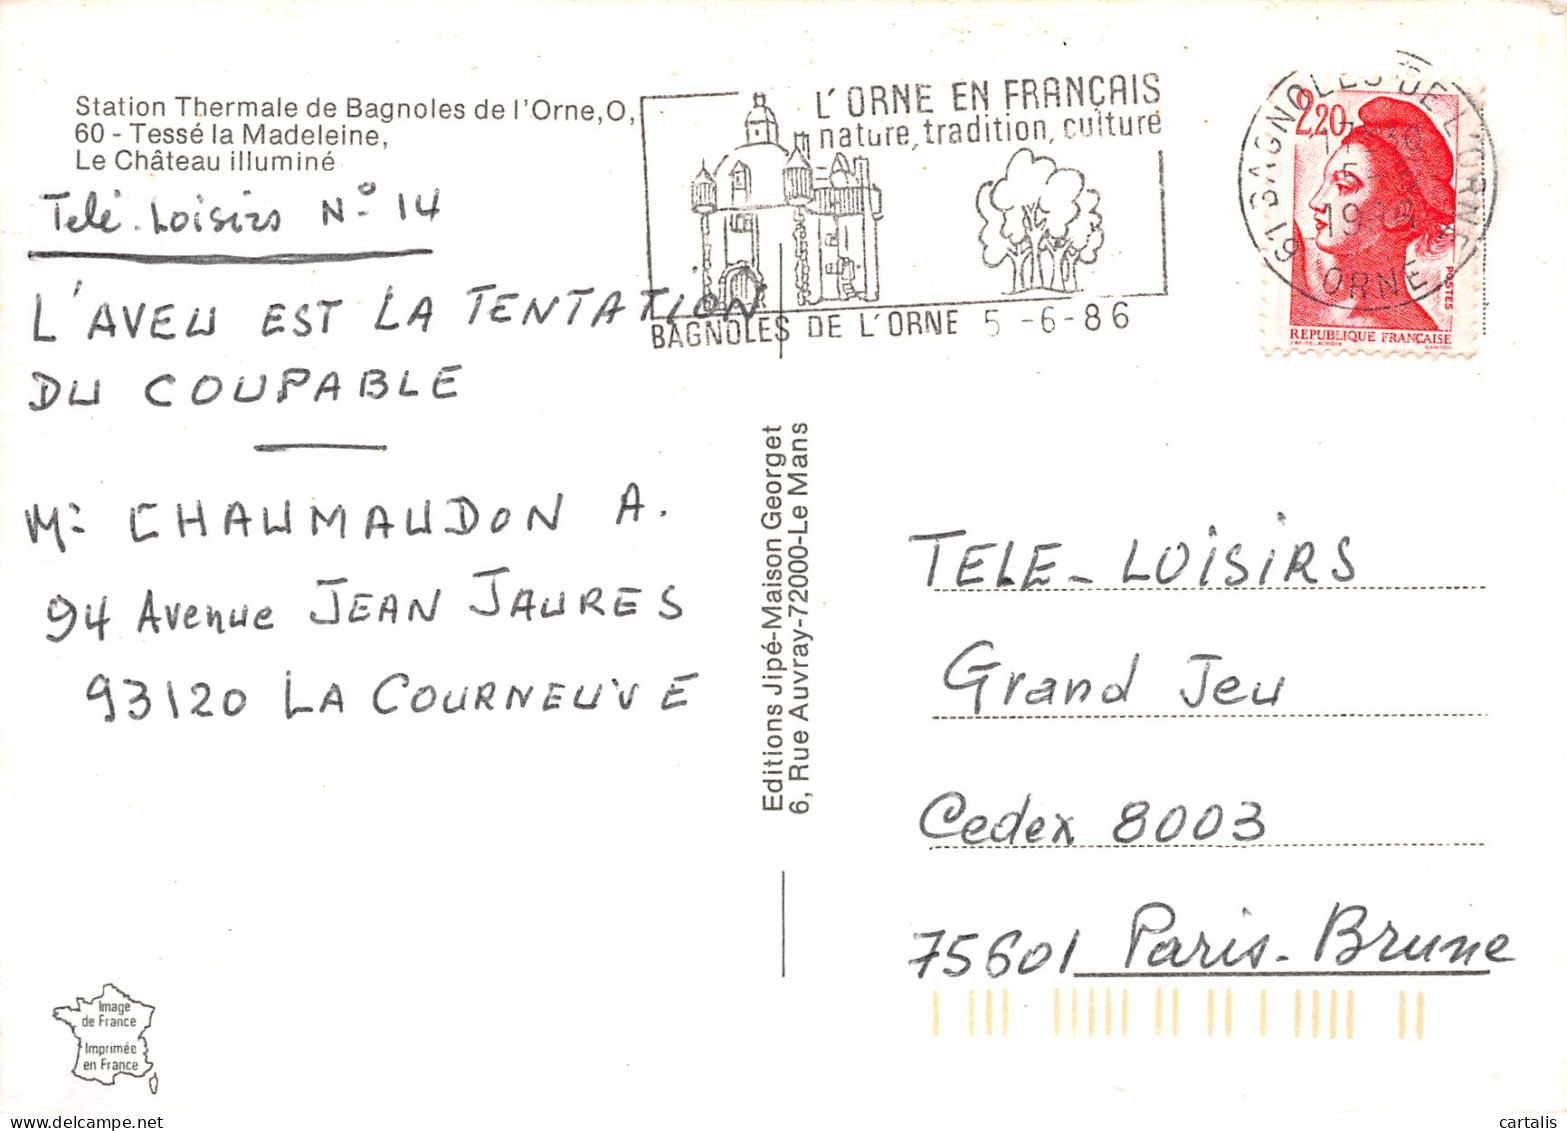 Station Thermale de Bagnoles de l'Orne,O,
60 - Tessé la Madeleine,
Le Château illuminé
Telé-Loisirs N° 14
L'AVEU EST LA TENTATION
DU COUPABLE
Mr CHAUMAUDON A.
94 Avenue JEAN JAURES
93120 LA COURNEUVE
Image
de France
Imprimée
en France
Editions Jipé-Maison Georget
6, Rue Auvray-72000-Le Mans
L'ORNE EN FRANÇAIS
nature, tradition, culture
BAGNOLES DE L'ORNE 5 -6-86
61 BAGNOLES DE L'ORNE
ORNE
2,20
POSTES
REPUBLIQUE FRANÇAISE
TELE-LOISIRS
Grand Jeu
Cedex 8003
75601 Paris-Brune
cartalis